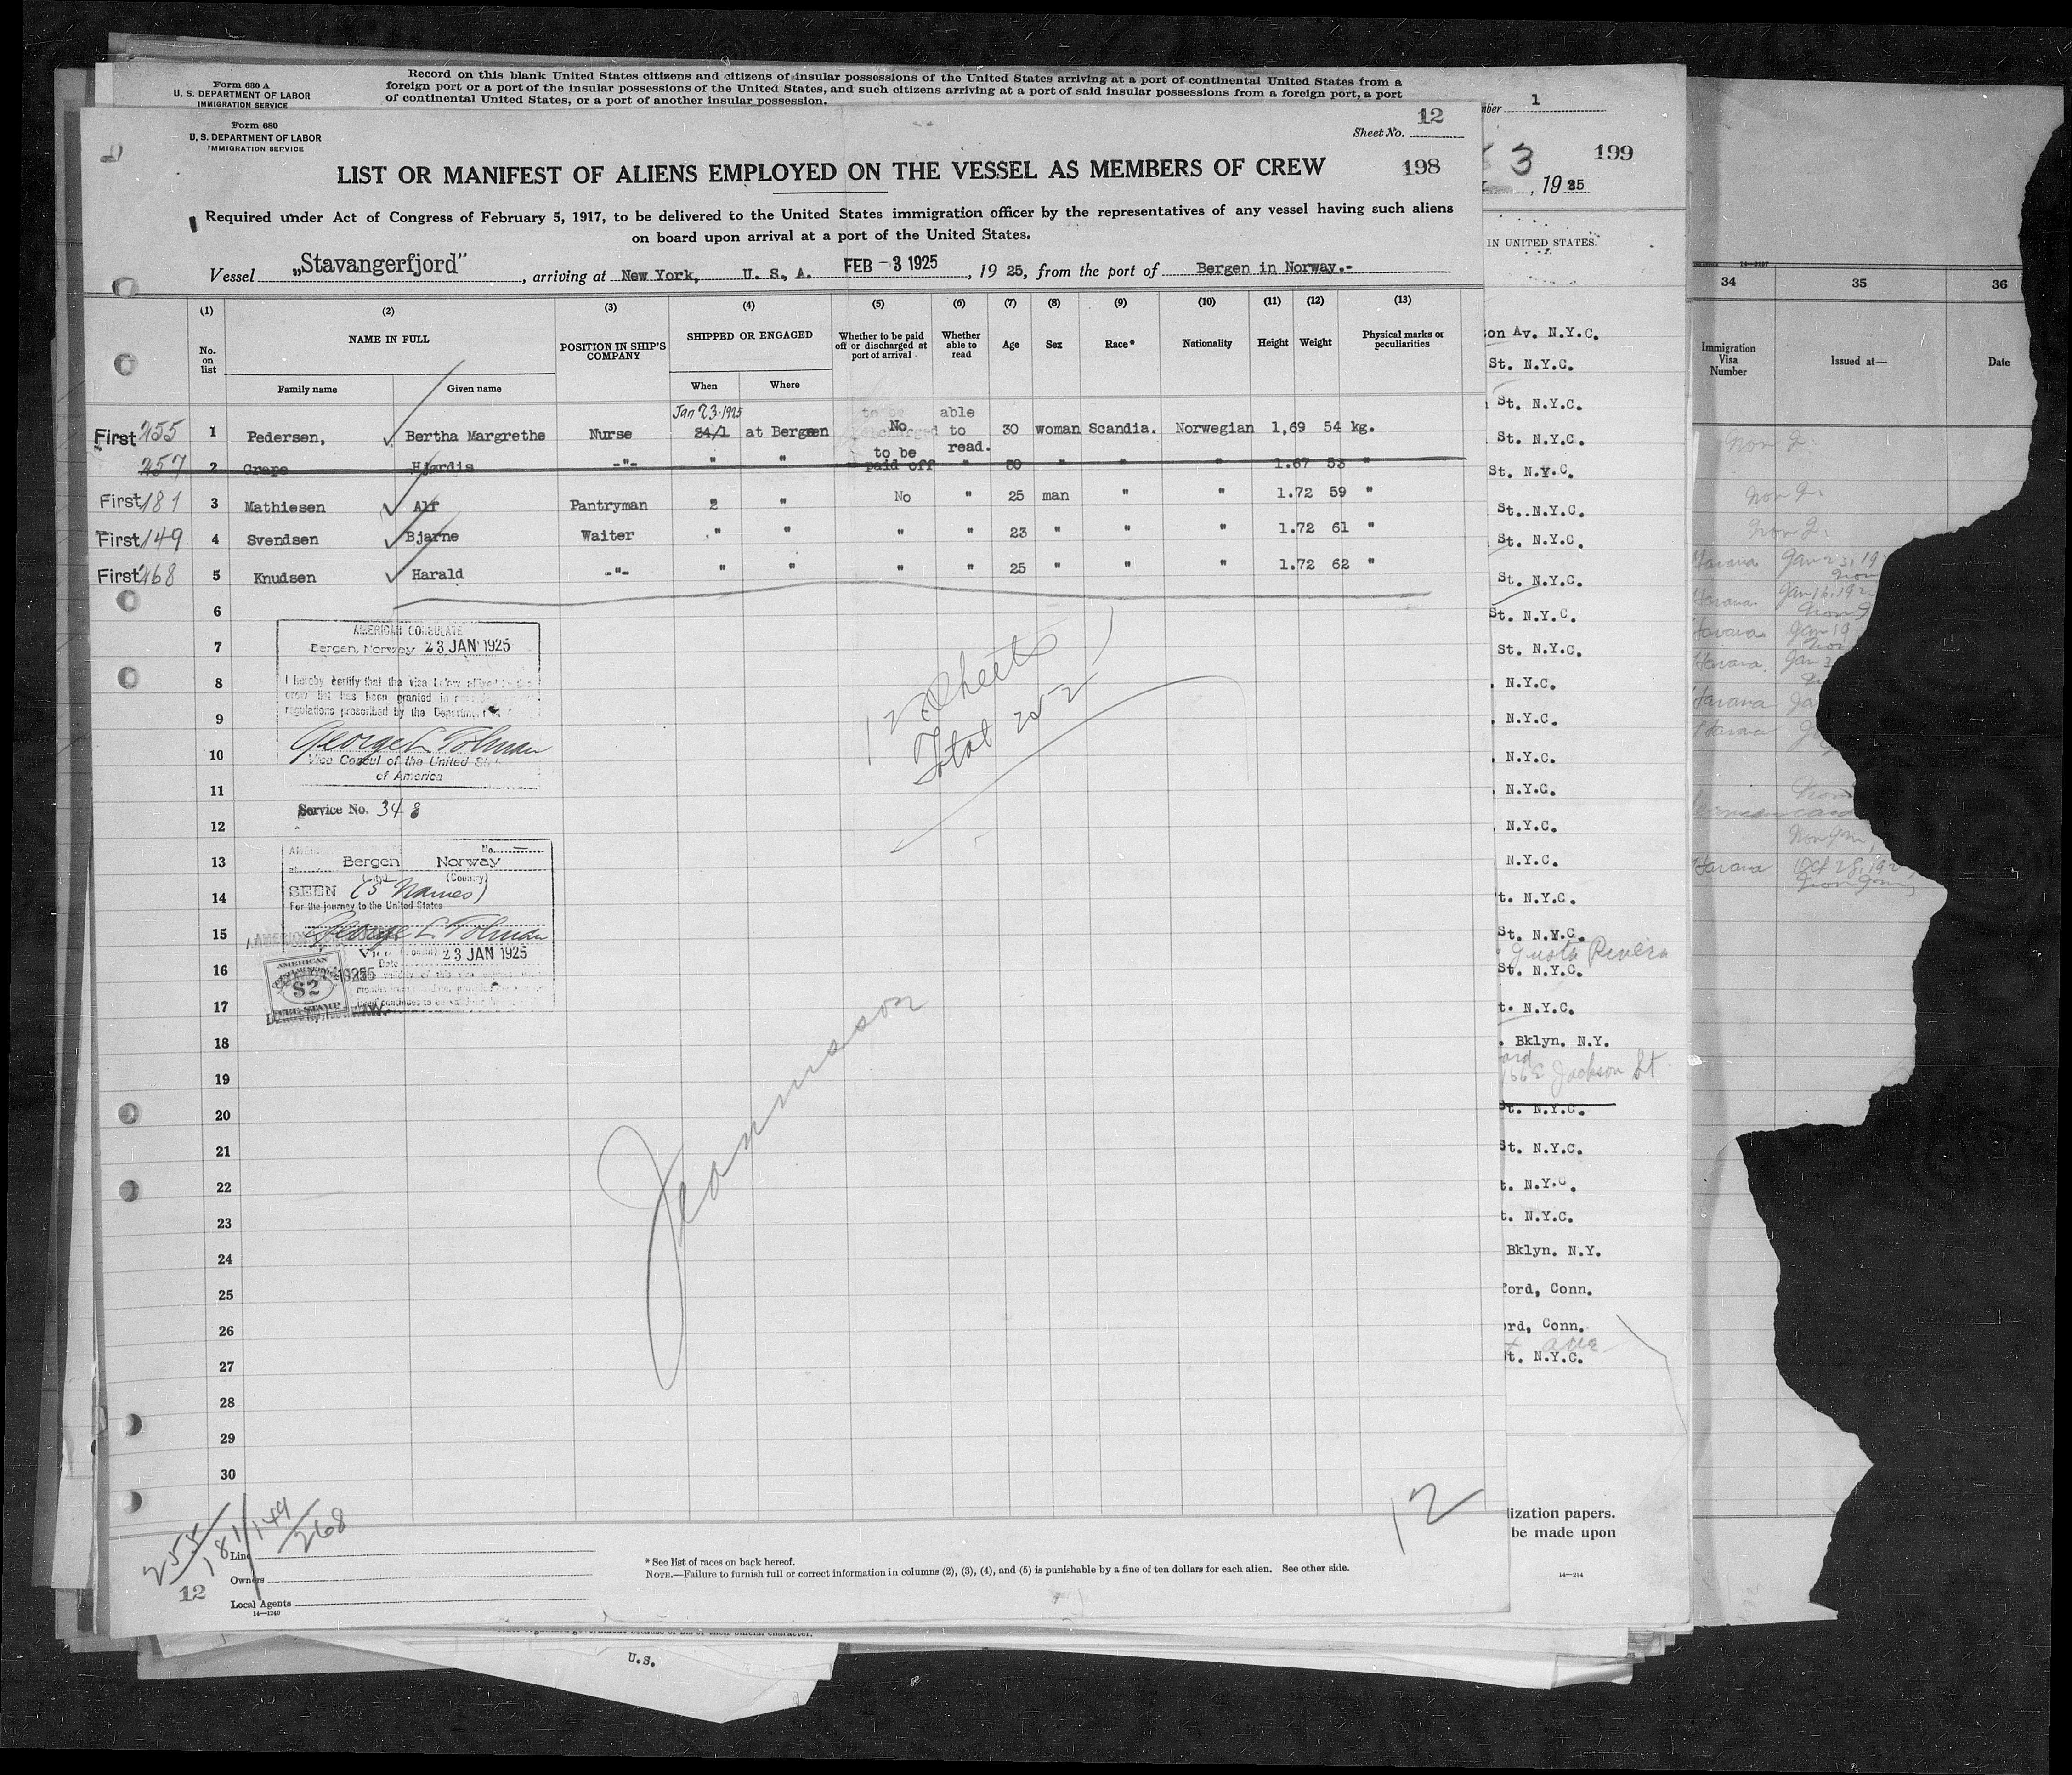 Form 630 A
U. S. DEPARTMENT OF LABOR
IMMIGRATION SERVICE
Record on this blank United States citizens and citizens of insular possessions of the United States arriving at a port of continental United States from a
foreign port or a port of the insular possessions of the United States, and such citizens arriving at a port of said insular possessions from a foreign port, a port
of continental United States, or a port of another insular possession.
Form 680
U. S. DEPARTMENT OF LABOR
IMMIGRATION SERVICE
Sheet No. 12
LIST OR MANIFEST OF ALIENS EMPLOYED ON THE VESSEL AS MEMBERS OF CREW 198
Required under Act of Congress of February 5, 1917, to be delivered to the United States immigration officer by the representatives of any vessel having such aliens
on board upon arrival at a port of the United States.
Vessel „Stavangerfjord", arriving at New York, U. S. A. FEB - 3 1925, 19 25, from the port of Bergen in Norway.-
(1) (2) (3) (4) (5) (6) (7) (8) (9) (10) (11) (12) (13)
No. on list NAME IN FULL POSITION IN SHIP'S COMPANY SHIPPED OR ENGAGED Whether to be paid off or discharged at port of arrival Whether able to read Age Sex Race* Nationality Height Weight Physical marks or peculiarities
Family name Given name When Where
Jan 23-1925
First 255 1 Pedersen, Bertha Margrethe Nurse 24/1 at Bergen No able to read. 30 woman Scandia. Norwegian 1,69 54 kg.
257 2 Hjørdis -"- " " to be paid off " 30 " " " 1.67 53 "
First 181 3 Mathiesen Alf Pantryman " " No " 25 man " " 1.72 59 "
First 149 4 Svendsen Bjarne Waiter " " " " 23 " " " 1.72 61 "
First 268 5 Knudsen Harald -"- " " " " 25 " " " 1.72 62 "
6
7
8
9
10
11
12
13
14
15
16
17
18
19
20
21
22
23
24
25
26
27
28
29
30
AMERICAN CONSULATE
Bergen, Norway 23 JAN 1925
I hereby certify that the visa below
crew list has been granted in
regulations prescribed by the Department
George L Tolman
Vice Consul of the United
of America
Service No. 348
12 Sheets
Total 252
Bergen Norway
(City) (Country)
SEEN (5 Names)
For the journey to the United States
George L Tolman
Vice
23 JAN 1925
AMERICAN
$2
FEE STAMP
Jeannusson
12
255 181 149 268
12
Line
Owners
Local Agents
14—1240
* See list of races on back hereof.
NOTE.—Failure to furnish full or correct information in columns (2), (3), (4), and (5) is punishable by a fine of ten dollars for each alien. See other side.
1
3 199
, 19 25
IN UNITED STATES.
on Av. N.Y.C.
St. N.Y.C.
St. N.Y.C.
St. N.Y.C.
St. N.Y.C.
St. N.Y.C.
St. N.Y.C.
St. N.Y.C.
St. N.Y.C.
St. N.Y.C.
N.Y.C.
N.Y.C.
N.Y.C.
N.Y.C.
N.Y.C.
N.Y.C.
t. N.Y.C.
St. N.Y.C.
Rivera
St. N.Y.C.
t. N.Y.C.
Bklyn. N.Y.
Jackson St
St. N.Y.C.
St. N.Y.C.
t. N.Y.C.
t. N.Y.C.
Bklyn. N.Y.
ford, Conn.
ord, Conn.
ave
St. N.Y.C.
lization papers.
be made upon
14—214
34 35 36
Immigration Visa Number Issued at— Date
Havana Jan 23, 19
Havana Jan 16, 192
Havana Jan 19
Havana Jan 3
Havana Ja
Havana
Havana Oct 28, 192
U.S.